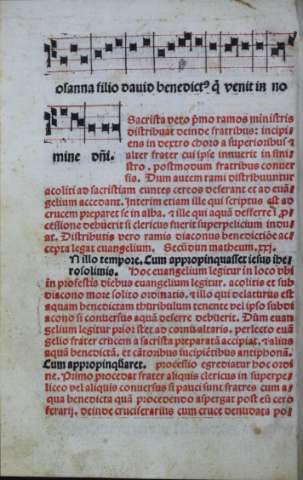 osanna filio dauid benedictꝰ q̄ venit in no
mine dñi.
Sacrista vero p̄mo ramos ministris
distribuat deinde fratribus: incipi
ens in dextro choro a superioribus ⁊
alter frater cui ipse innuerit in sini
stro. postmodum fratribus conuer
sis. Dum autem rami distribuuntur
acoliti ad sacristiam euntes cereos deferant et ad euā
gelium accedant. Interim etiam ille qui scriptus est ad
crucem preparet se in alba. ⁊ ille qui aquā desferre ī ꝓ
cessione debuerit si clericus fuerit superpelicium indu
at. Distributis vero ramis diaconus benedictiōe ac
cepta legat euangelium. Secūdum matheum. xxj.
N illo tempore. Cum appropinquasset iesus ihe
rosolimis. Hoc euangelium legitur in loco vbi
in profestis diebus euangelium legitur. acolitis et sub
diacono more solito ordinatis. ⁊ illo qui delaturus est
aquam benedictam thuribulum tenente vel ipso subdi
acono si conuersus aquā deferre debuerit. Dūm euan
gelium legitur prior stet ad conuētualiaris. perlecto euā
gelio frater crucem a sacrista preparatā accipiat. ⁊ alius
aquā benedictā. et cātoribus incipiētibus antiphonā.
Cum appropinq̄aret. processio egrediatur hoc ordi
ne. Primo procedat frater aliquis clericus in superpe
liceo vel aliquis conuersus si pauci sunt fratres cum a
qua benedicta quā procedendo aspergat post eū cero
ferarij. deinde cruciferarius cum cruce denudata po